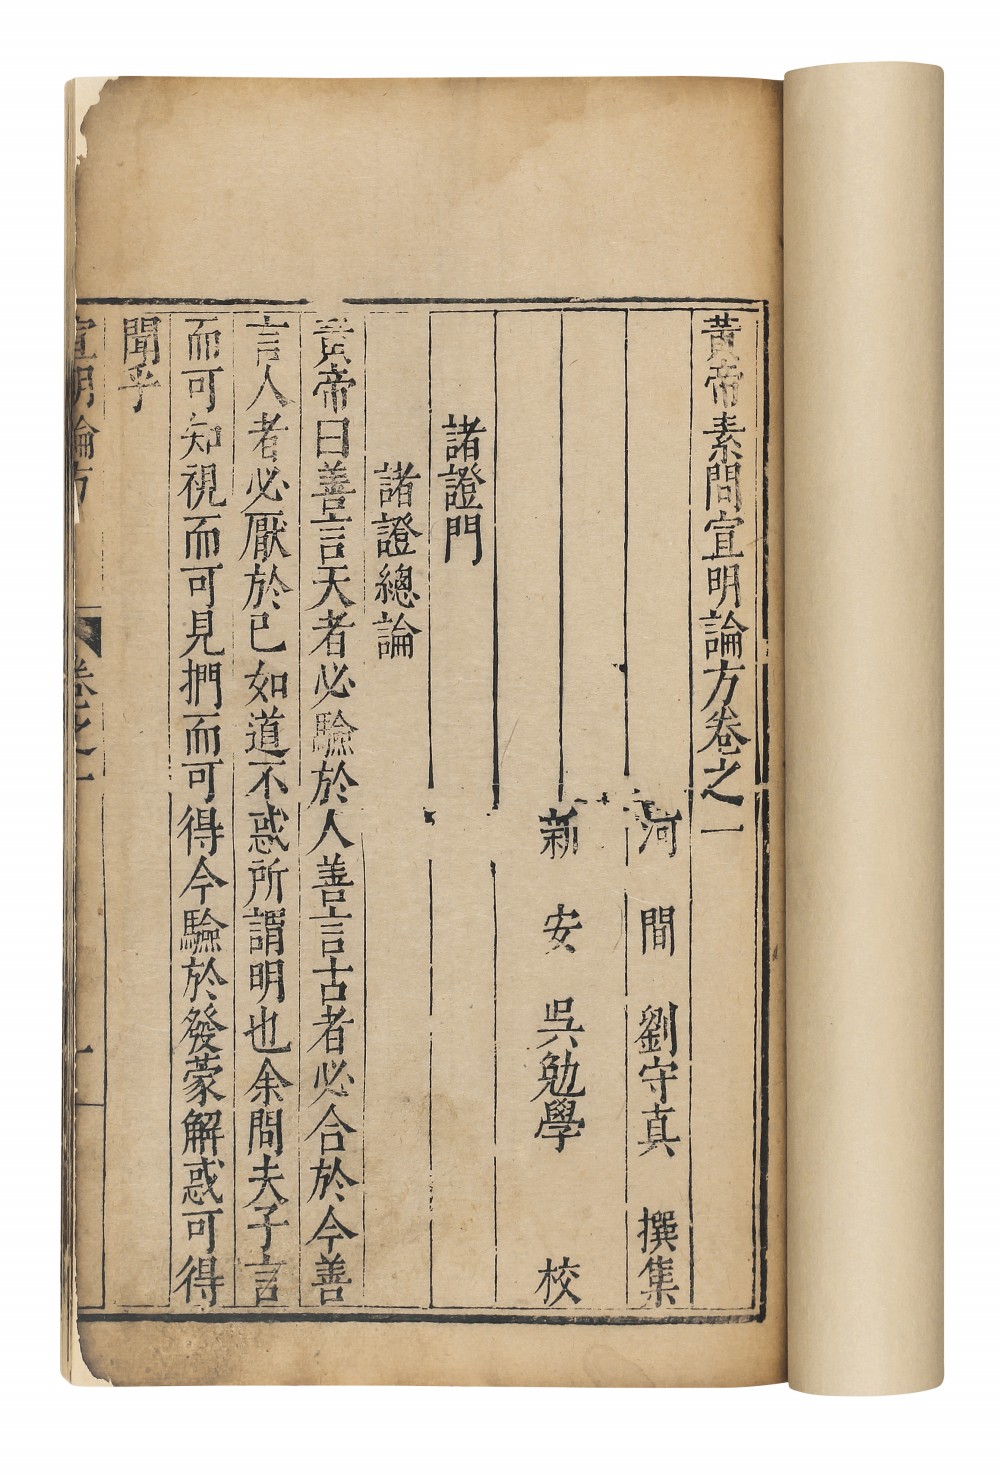 黃帝素問宣明論方卷之一
河間劉守真撰集
新安吳勉學校
諸證門
諸證總論
黃帝曰善言天者必驗於人善言古者必合於今善
言人者必厭於己如道不惑所謂明也余問夫子言
而可知視而可見捫而可得今驗於發蒙解惑可得
聞乎
宣明論方 卷之一 一